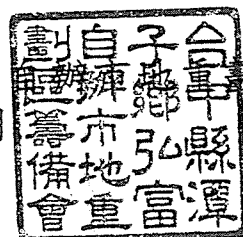 台中縣潭
子鄉弘富
自辦市地重
劃區籌備會